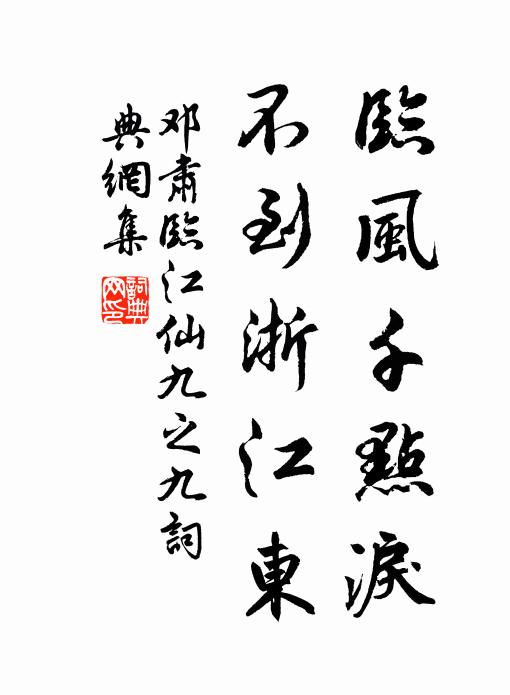 臨風千點淚
不到浙江東
邓肅臨江仙九之九詞
典網集
詞典
网印